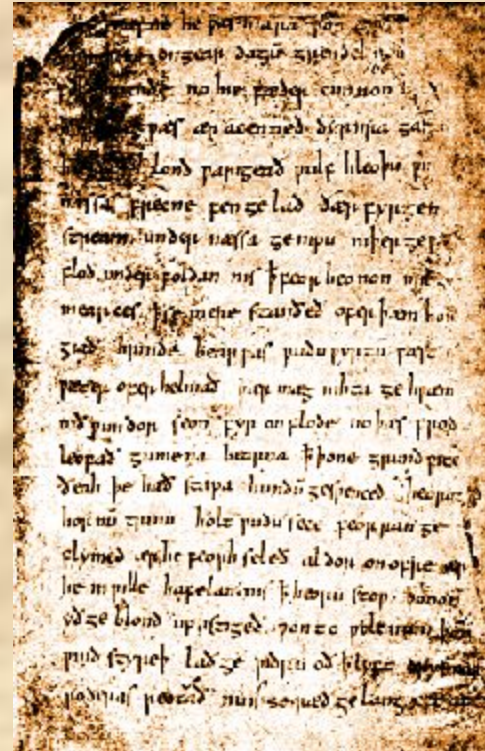 næfne he wæs mara þoñ
on gear dagū grendel
no hie fæder cunnon
wæs ær acenned dyrnra gas
lond warigeað wulf hleoþu wi
næssas frecne fen gelad ðær fyrgen
stream under næssa genipu niþer gew
flod under foldan nis ꝥ feor heonon mil
mearces ꝥ se mere standeð ofer þæm hon
giað hrinde bearwas wudu wyrtū fæst
wæter ofer helmað þær mæg nihta ge hwæm
nið wundor seon fyr on flode no þæs frod
leofað gumena bearna ꝥ þone grund wite
ðeah þe hæð stapa hundū geswenced heorot
hornū trum holt wudu sece feorran ge
flymed ær he feorh seleð aldor on ofre ær
he in wille hafelan nis ꝥ heoru stow þonon
yð ge blond up astigeð won to wolcnum þoñ
wind styreþ lað ge widru oð ꝥ lyft
roderas reotað nu is se ræd ge lang